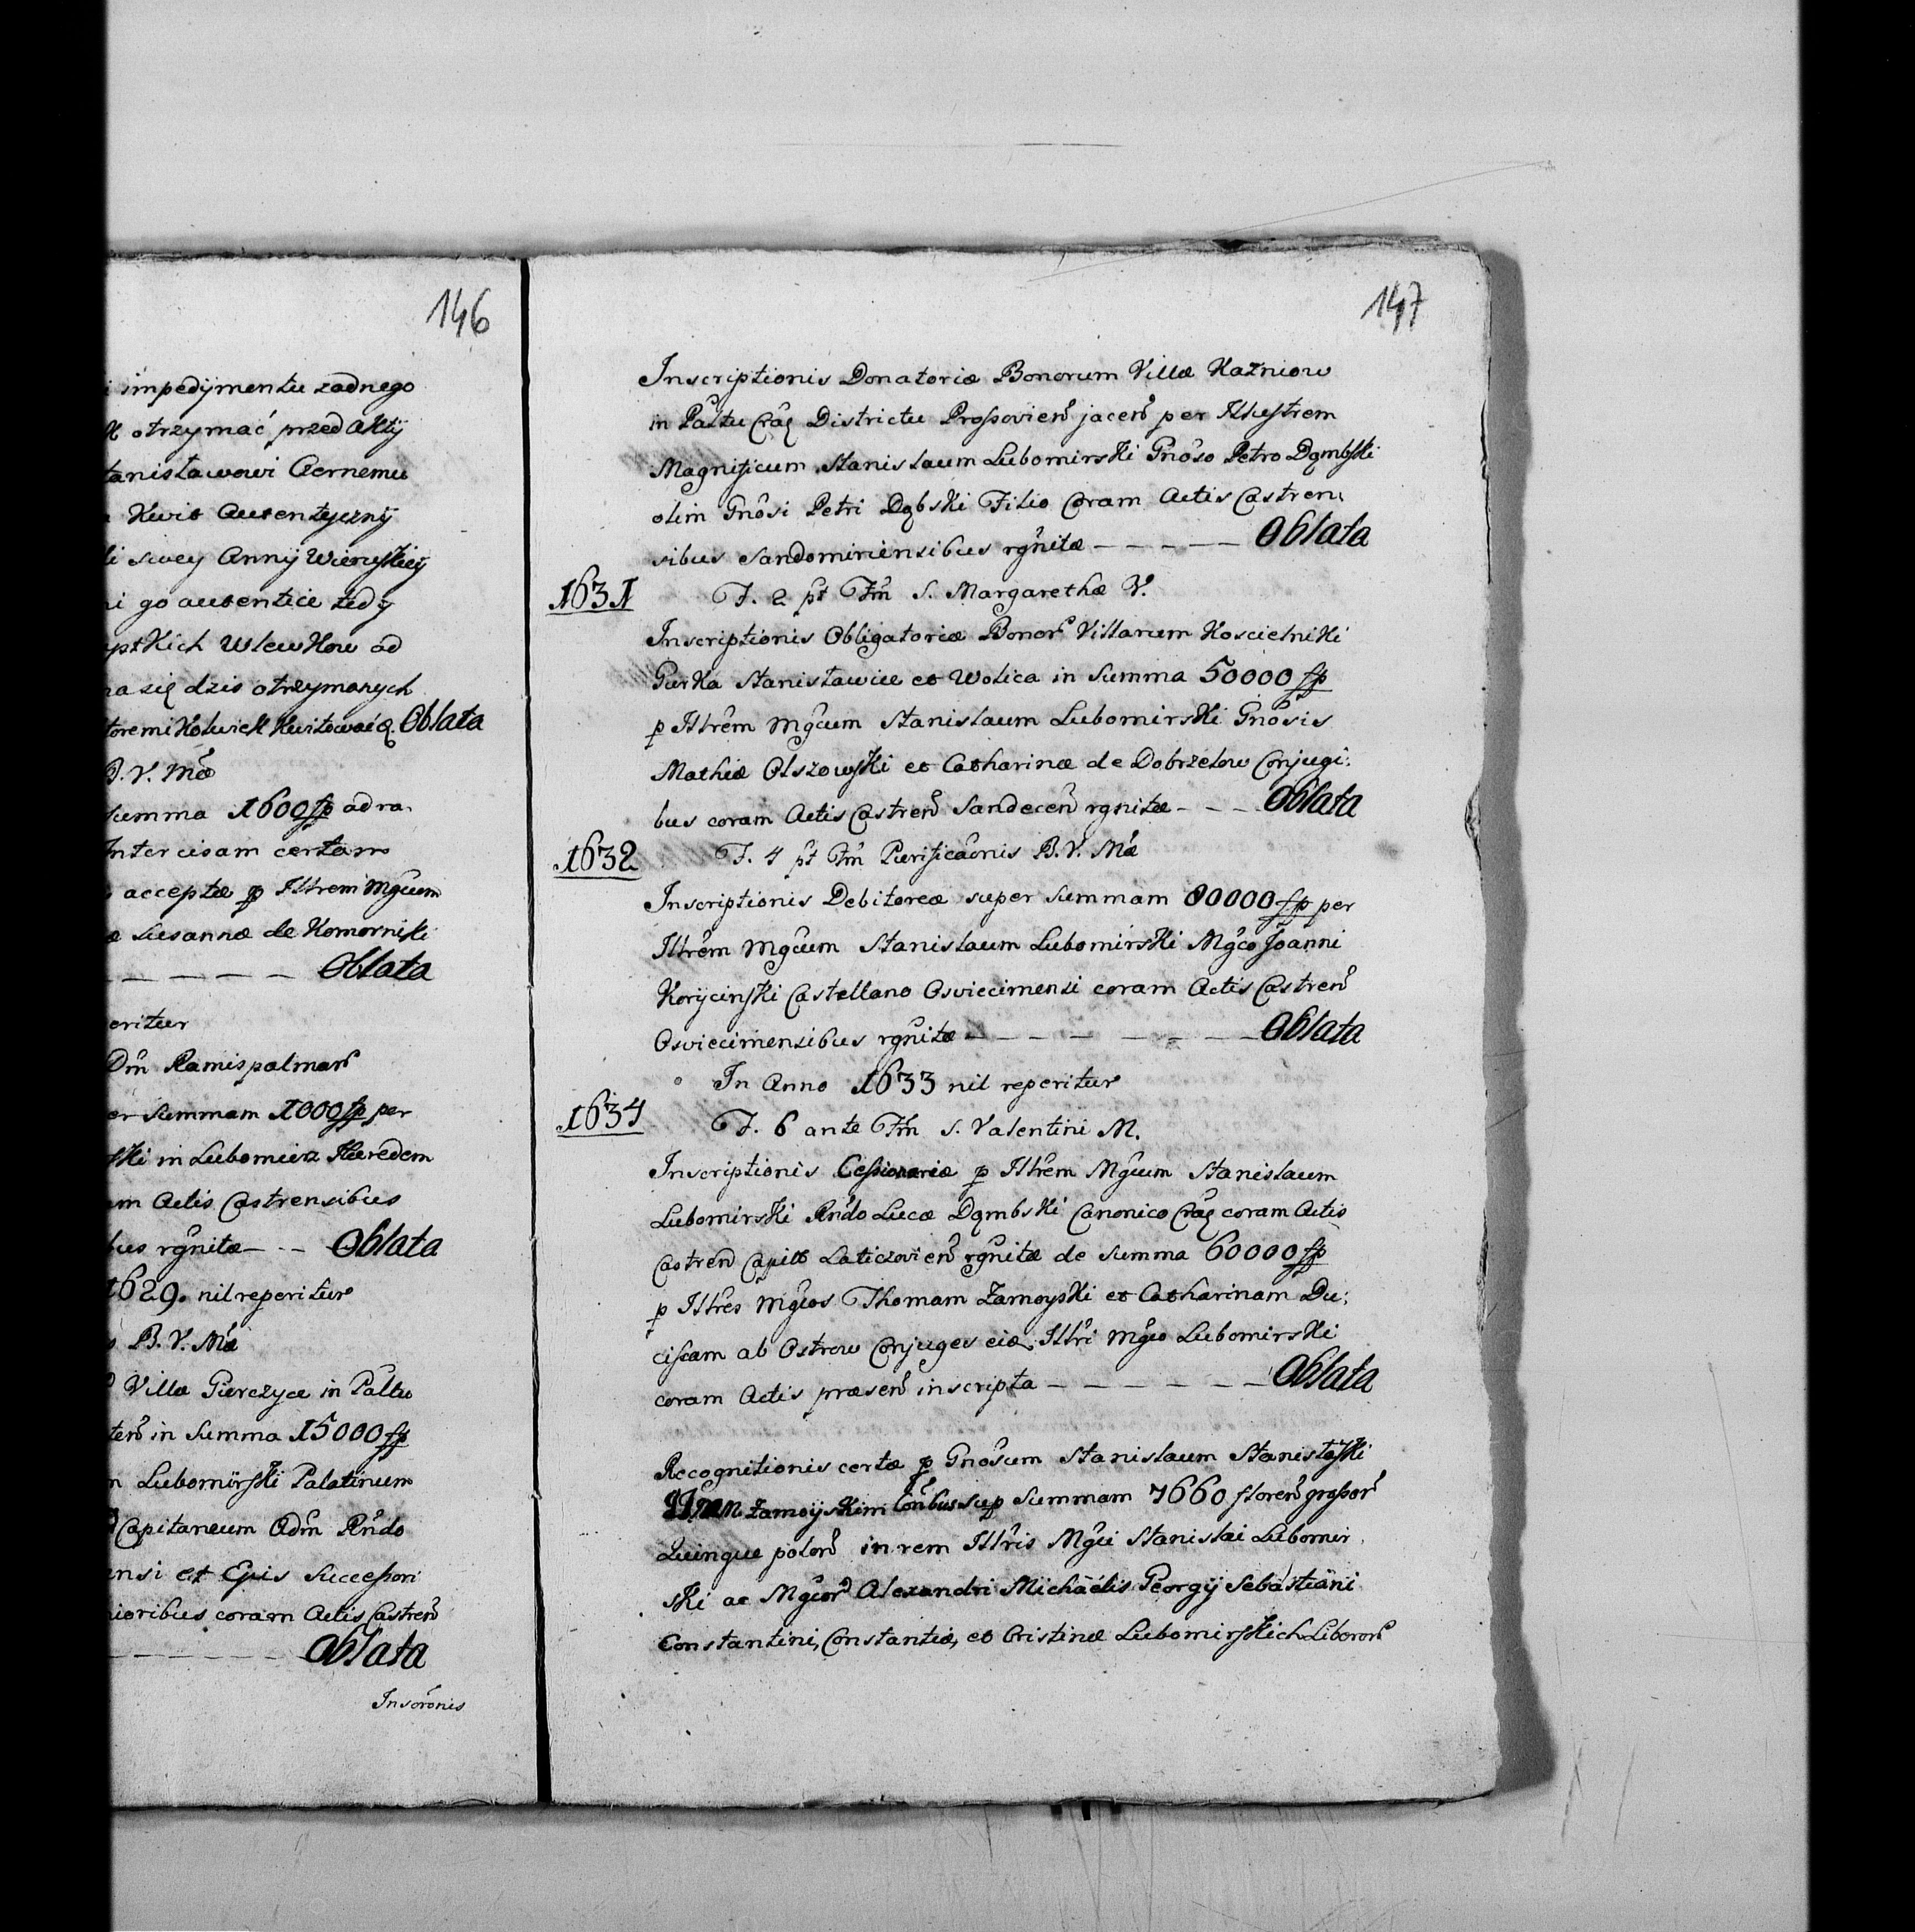 146
impedÿmentu zadnego
otrzymać przed Aktÿ
tanisławowi Czernemu
Kwit Autentycznÿ
swey Annÿ Wieruskieÿ
go autentice tedÿ
ptkich Wlewkow ad
na się dzis otrzymanych
toremi Kolwiek Kwitować Oblata
B. V. Mæ
summa 1600 fp ad ra.
Intercisam certam
acceptæ p Illtrem Mgcum
Susannæ de Komorniki
— — — — — Oblata
eritur
Dm Ramispalmar
er Summam 1000 fp per
ski in Lubomierz Hæredem
am Actis Castrensibus
bus rgnitæ — - - Oblata
1629. nil reperitur
B. V. Mæ
Villæ Pierczyce in Paltu
ten in Summa 15000 fp
m Lubomirski Palatinum
Capitaneum Adm Rndo
ensi et Epis Successori
nioribus coram Actis Castren
— — — — — Oblata
Inscronis
147
Inscriptionis Donatoriæ Bonorum Villæ Kazniow
in Paltu Crac Districtu Prossovien jacen per Illustrem
Magnificum Stanislaum Lubomirski Gnoso Petro Dąmbski
olim Gnosi Petri Dąbski Filio Coram Actis Castren,
sibus Sandomiriensibus rgnitæ — — — — — Oblata
1631 F. 2 pt Ftm S. Margarethæ V.
Inscriptionis Obligatoriæ Bonor Villarum Koscielniki
Gurka Stanisławice et Wolica in Summa 50000 fp
p Illtrem Mgcum Stanislaum Lubomirski Gnosis
Mathiæ Olszowski et Catharinæ de Dobrzelow Conjugi:
bus coram Actis Castren Sandecen rgnitæ - — - Oblata
1632 F. 4 pt Ftm Purificaonis B. V. Mæ
Inscriptionis Debitoreæ super Summam 80000 fp per
Illtrem Mgcum Stanislaum Lubomirski Mgco Joanni
Korÿcinski Castellano Osviecimensi coram Actis Castren
Osviecimensibus rgnitæ — — — — — — — Oblata
In Anno 1633 nil reperitur
1634 F. 6 ante Ftm S. Valentini M.
Inscriptionis Cessionariæ p Illtrem Mgcum Stanislaum
Lubomirski Rndo Lucæ Dąmbski Canonico Crac coram Actis
Castren Capitt Laticzovien rgnitæ de Summa 60000 fp
p Illtres Mgcos Thomam Zamoyski et Catharinam Du:
cissam ab Ostrow Conjuges eid. Illtri Mgco Lubomirski
coram Actis præsen inscripta — — — — — — Oblata
Recognitionis certæ p Gnosum Stanislaum Stanisłaski
Zamoÿskim Conbus sup Summam 7660 floren grossor
Quinque polon in rem Illtris Mgci Stanislai Lubomir
ski ac Mgcor Alexandri Michäelis Georgij Sebastiani
Constantini, Constantiæ, et Cristinæ Lubomirskich Liberor